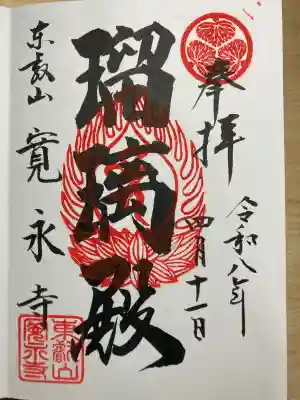 奉拝
令和八年
四月十一日
瑠璃殿
東叡山 寛永寺
東叡山
寛永寺